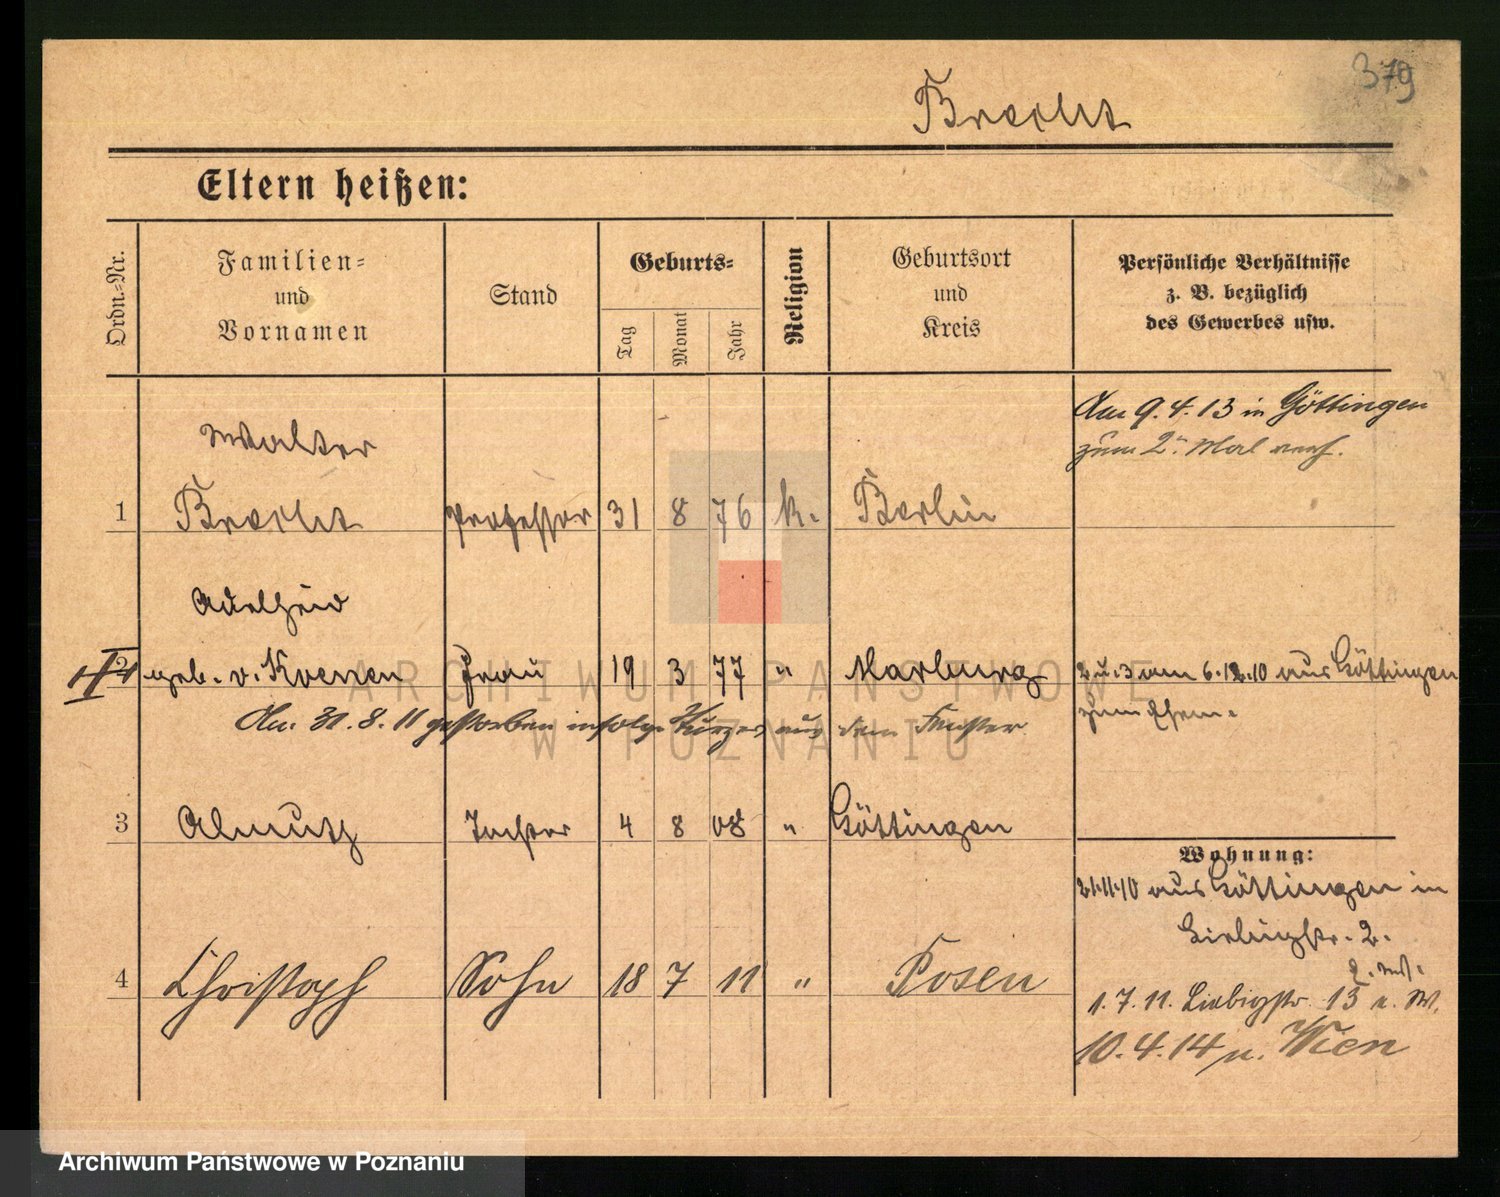 379
Brecht
Eltern heißen:
Ordn.-Nr.
Familien-
und
Vornamen
Stand
Geburts-
Tag
Monat
Jahr
Religion
Geburtsort
und
Kreis
Persönliche Verhältnisse
z. B. bezüglich
des Gewerbes usw.
Am 9.4.13 in Göttingen
zum 2. Mal verh.
Walter
1 Brecht Professor 31 8 76 k. Berlin
Adelheid
2 geb. v. Koenen Frau 19 3 77 " Marburg 2 u. 3 am 6.12.10 aus Göttingen
zum Ehem.
Am 31.8.11 gestorben infolge Sturzes aus dem Fenster
3 Almuth Tochter 4 8 08 " Göttingen
Wohnung:
21.11.10 aus Göttingen in
Liebigstr. 2.
4 Christoph Sohn 18 7 11 " Posen
1.7.11. Liebigstr. 13 e. W.
10.4.14 n. Wien
ARCHIWUM PAŃSTWOWE
W POZNANIU
Archiwum Państwowe w Poznaniu